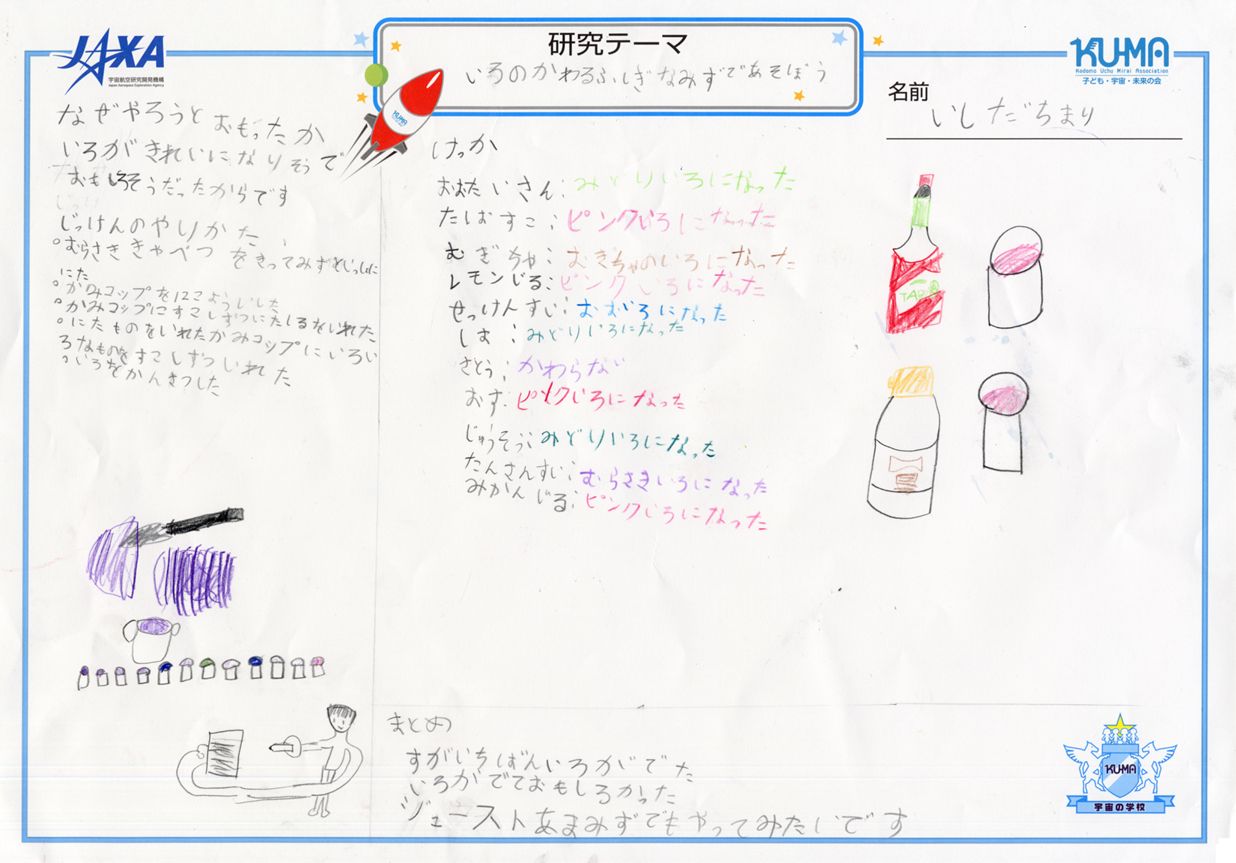 JAXA
宇宙航空研究開発機構
Japan Aerospace Exploration Agency
研究テーマ
いろのかわるふしぎなみずであそぼう
KUMA
Kodomo Uchu Mirai Association
子ども・宇宙・未来の会
名前
いしだちまり
KUMA
なぜやろうとおもったか
いろがきれいになりそうで
おもしろそうだったからです
じっけんのやりかた
°むらさききゃべつをきってみずといっしょに
にた
°かみコップを12こよういした
°かみコップにすこしずつにたしるをいれた
°にたものをいれたかみコップにいろい
ろなものをすこしずついれた
°いろをかんさつした
けっか
おおたいさん:みどりいろになった
たばすこ:ピンクいろになった
むぎちゃ:むぎちゃのいろになった
レモンじる:ピンクいろになった
せっけんすい:になった
しお:みどりいろになった
さとう:かわらない
おす:ピンクいろになった
じゅうそう:みどりいろになった
たんさんすい:むらさきいろになった
みかんじる:ピンクいろになった
まとめ
すがいちばんいろがでた
いろがでておもしろかった
ジューストあまみずでもやってみたいです
KUMA
宇宙の学校